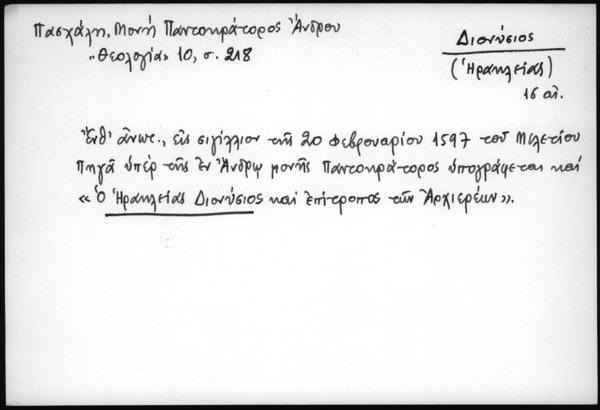 Πασχάλη, Μονή Παντοκράτορος Ἄνδρου
«Θεολογία» 10, σ. 218
Διονύσιος
(Ἡρακλείας)
16 αἰ.
Ἔνθ' ἀνωτ., εἰς σιγίλλιον τῆς 20 Φεβρουαρίου 1597 τοῦ Μελετίου
Πηγᾶ ὑπέρ τῆς ἐν Ἄνδρῳ μονῆς Παντοκράτορος ὑπογράφεται καί
«Ὁ Ἡρακλείας Διονύσιος καί ἐπίτροπος τῶν Ἀρχιερέων».